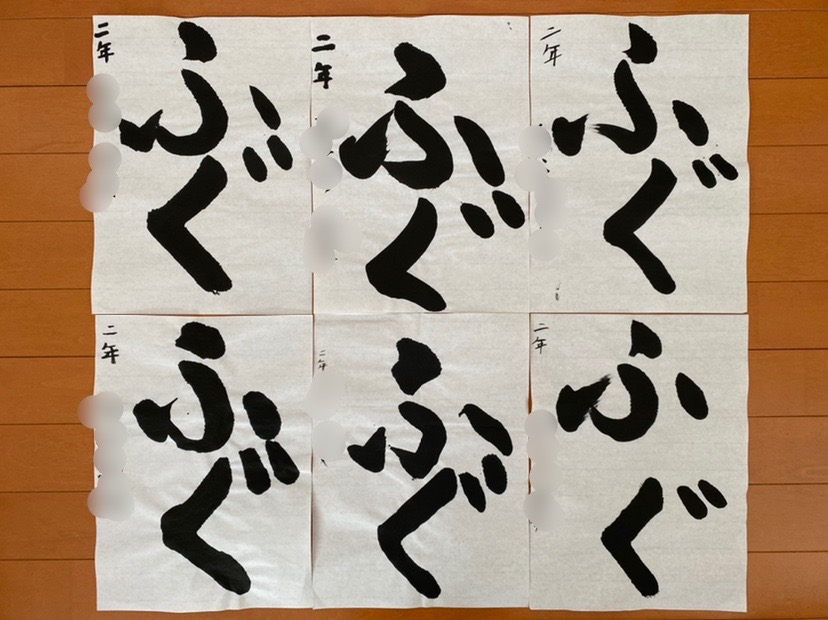 二年
ふぐ
二年
ふぐ
二年
ふぐ
二年
ふぐ
二年
ふぐ
二年
ふぐ